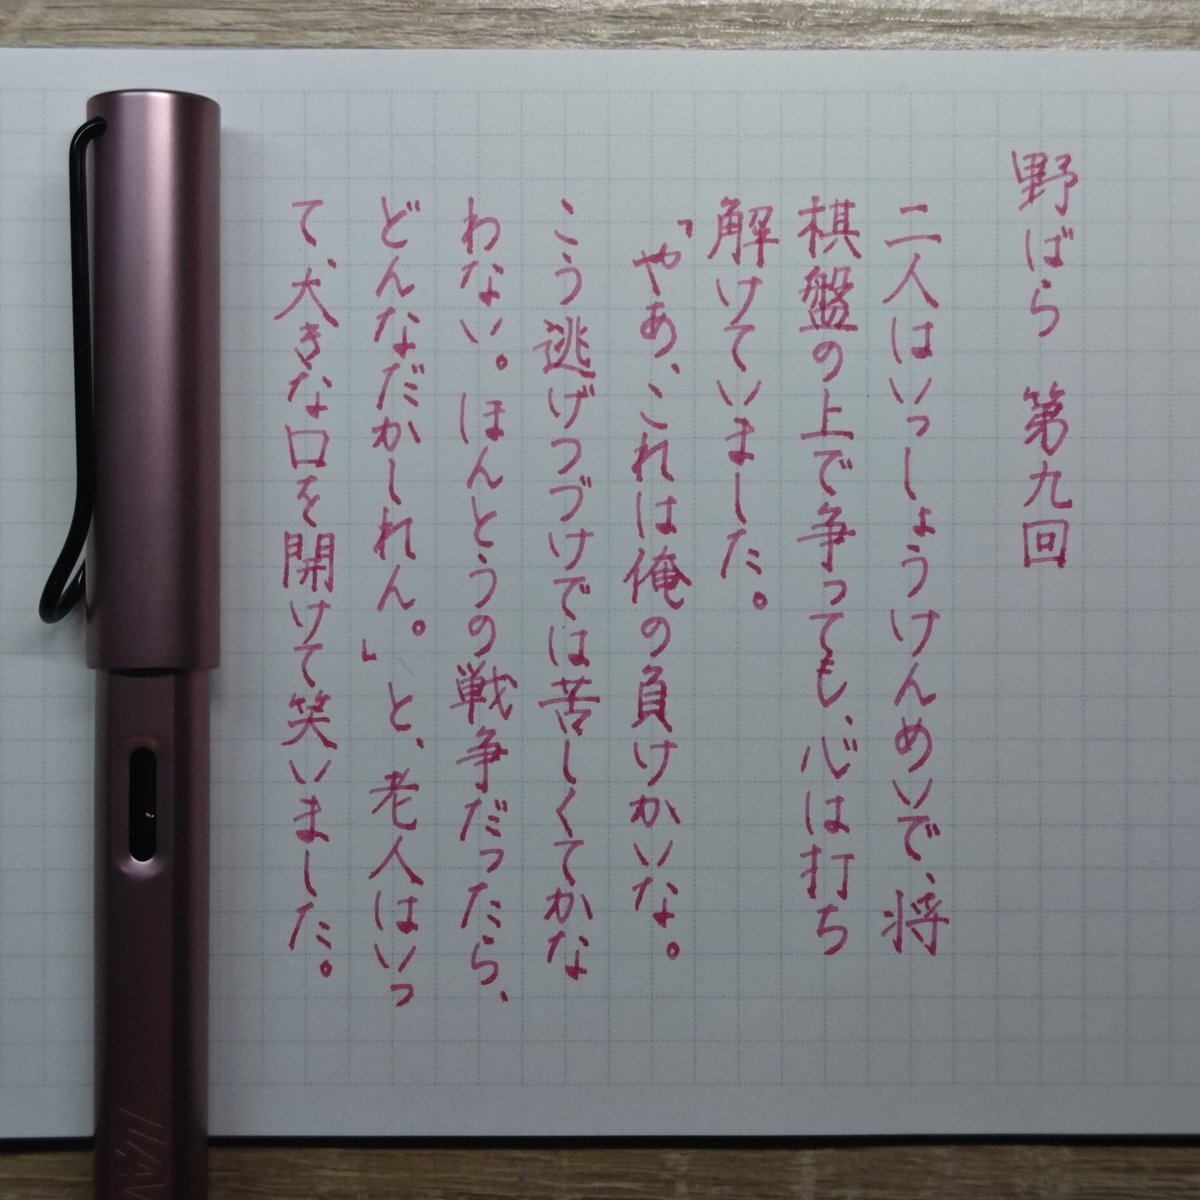 野ばら　第九回
二人はいっしょうけんめいで、将
棋盤の上で争っても、心は打ち
解けていました。
「やあ、これは俺の負けかいな。
こう逃げつづけでは苦しくてかな
わない。ほんとうの戦争だったら、
どんなだかしれん。」と、老人はいっ
て、大きな口を開けて笑いました。